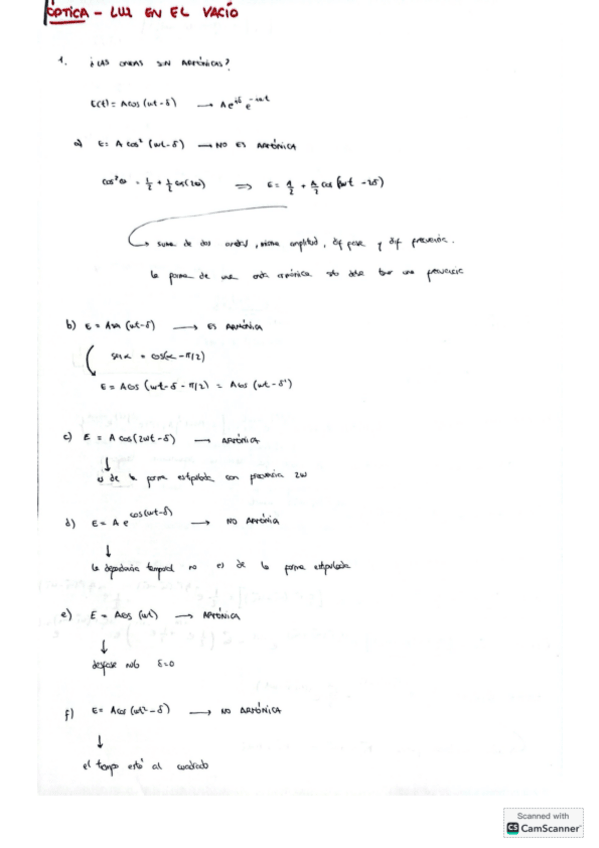 ÓPTICA - LUZ EN EL VACÍO
1. ¿LAS ONDAS SON ARMÓNICAS?
E(t) = A cos (ωt - δ) → A e^{iδ} e^{-iωt}
a) E = A cos² (ωt - δ) → NO ES ARMÓNICA
cos²α = 1/2 + 1/2 cos(2α) ⇒ E = A/2 + A/2 cos (2ωt - 2δ)
suma de dos ondas, misma amplitud, dif fase y dif frecuencia.
la forma de una onda armónica solo debe tener una frecuencia
b) E = A sen (ωt - δ) → ES ARMÓNICA
sen α = cos(α - π/2)
E = A cos (ωt - δ - π/2) = A cos (ωt - δ')
c) E = A cos (2ωt - δ) → ARMÓNICA
↓
es de la forma estipulada con frecuencia 2ω
d) E = A e^{cos(ωt-δ)} → NO ARMÓNICA
↓
la dependencia temporal no es de la forma estipulada
e) E = A cos (ωt) → ARMÓNICA
↓
desfase nulo δ=0
f) E = A cos (ωt² - δ) → NO ARMÓNICA
↓
el tiempo está al cuadrado
Scanned with
CS CamScanner